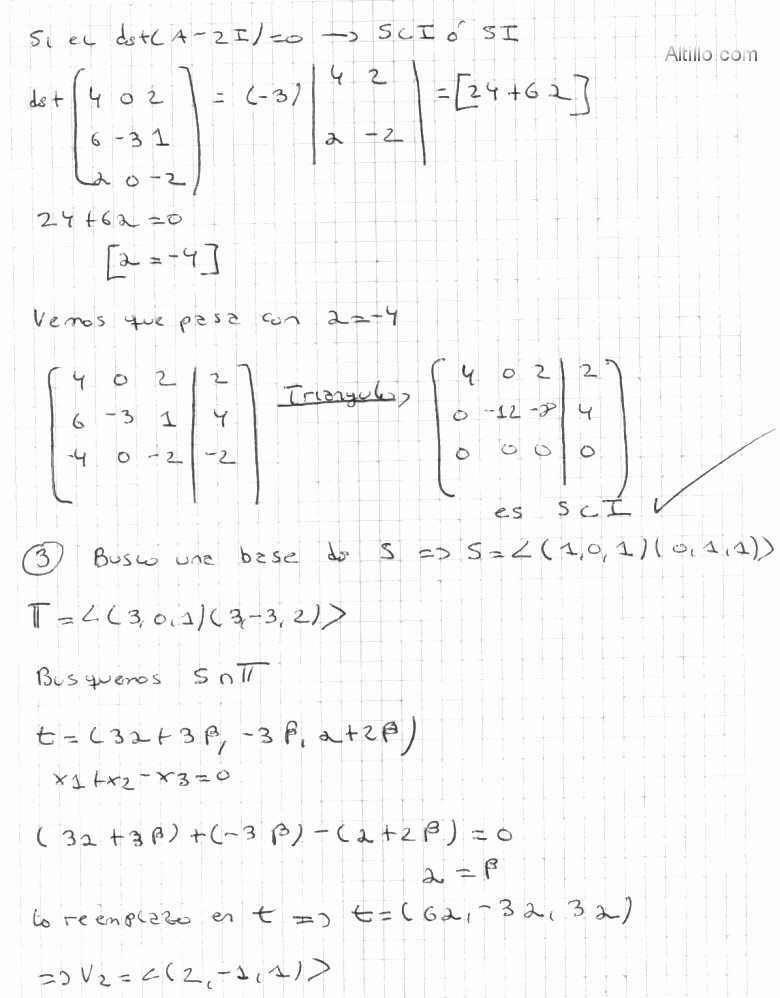 Si el det(A-2I)=0 → SCI ó SI
Altillo.com
det (4 0 2 = (-3) | 4 2 | = [24+6α]
6 -3 1 | α -2 |
α 0 -2)
24+6α=0
[α=-4]
Vemos que pasa con α=-4
( 4 0 2 | 2 ) Triangulo, ( 4 0 2 | 2 )
( 6 -3 1 | 4 ) ( 0 -12 -8 | 4 )
( -4 0 -2 | -2 ) ( 0 0 0 | 0 )
es SCI ✓
③ Busco una base de S => S=<(1,0,1)(0,1,1)>
T=<(3,0,1)(3,-3,2)>
Busquemos S∩T
t=(3α+3β, -3β, α+2β)
x1+x2-x3=0
(3α+3β)+(-3β)-(α+2β)=0
α=β
lo reemplazo en t => t=(6α,-3α,3α)
=> V2=<(2,-1,1)>